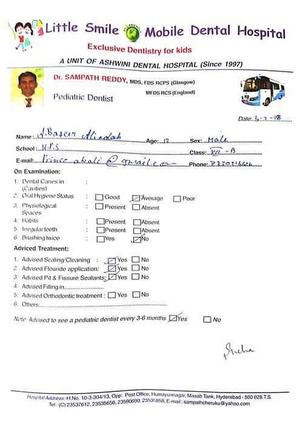 Little Smile Mobile Dental Hospital
Exclusive Dentistry for kids
A UNIT OF ASHWINI DENTAL HOSPITAL (Since 1997)
Dr. SAMPATH REDDY, MDS, FDS RCPS (Glasgow)
MFDS RCS (England)
Pediatric Dentist
Date:
Name: Age: 12 Sex: Male
School: N.P.S Class: VII - B
E-mail: Phone:
On Examination:
1. Dental Caries in (Cavities) :
2. Oral Hygiene Status : Good Average Poor
3. Physiological Spaces : Present Absent
4. Habits : Present Absent
5. Irregular teeth : Present Absent
6. Brushing twice : Yes No
Adviced Treatment:
1. Advised Scaling/Cleaning : Yes No
2. Advised Flouride application: Yes No
3. Advised Pit & Fissure Sealants: Yes No
4. Advised Filling in
5. Advised Orthodontic treatment : Yes No
6. Others:
Note: Advised to see a pediatric dentist every 3-6 months Yes No
Hospital Address: H.No. 10-3-304/13, Opp. Post Office, Humayunnagar, Masab Tank, Hyderabad - 500 028 T.S.
Tel: (C) 23537612, 23535656, 23590690, 23531858, E-mail: sampathcheruku@yahoo.com